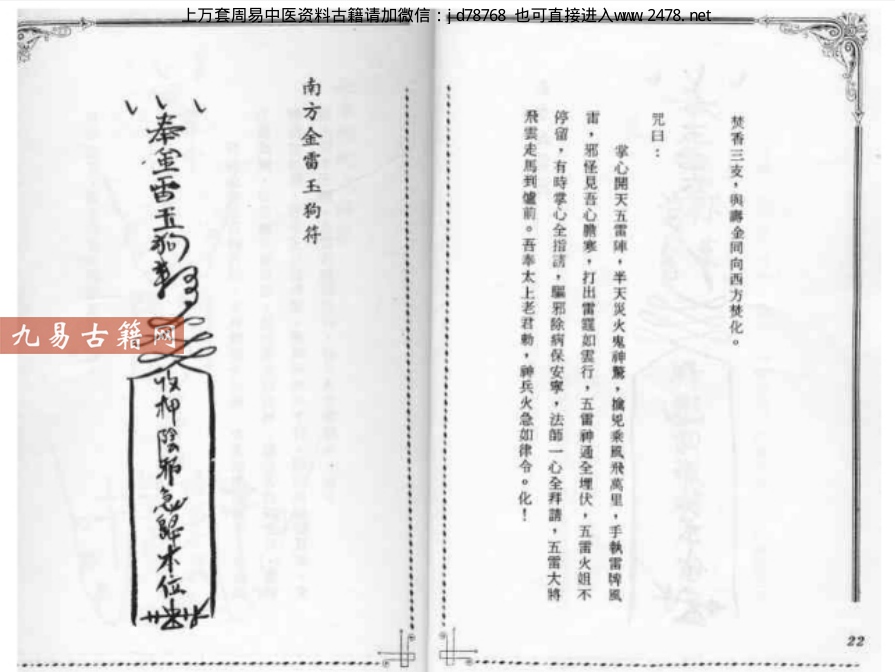 上万套周易中医资料古籍请加微信：jd78768 也可直接进入www.2478.net
焚香三支，與壽金同向西方焚化。
咒曰：
掌心開天五雷陣，半天災火鬼神驚，擒兇乘風飛萬里，手執雷牌風
雷，邪怪見吾心膽寒，打出雷霆如雲行，五雷神通全埋伏，五雷火姐不
停留，有時掌心全指請，驅邪除病保安寧，法師一心全拜請，五雷大將
飛雲走馬到爐前。吾奉太上老君勅，神兵火急如律令。化！
22
南方金雷玉狗符
奉金雷玉狗
收押陰邪急歸本位
九易古籍网